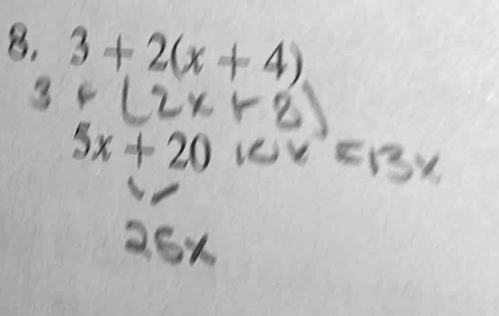 8. 3 + 2(x + 4)
3 + (2x + 8)
5x + 20 10x = 13x
25x